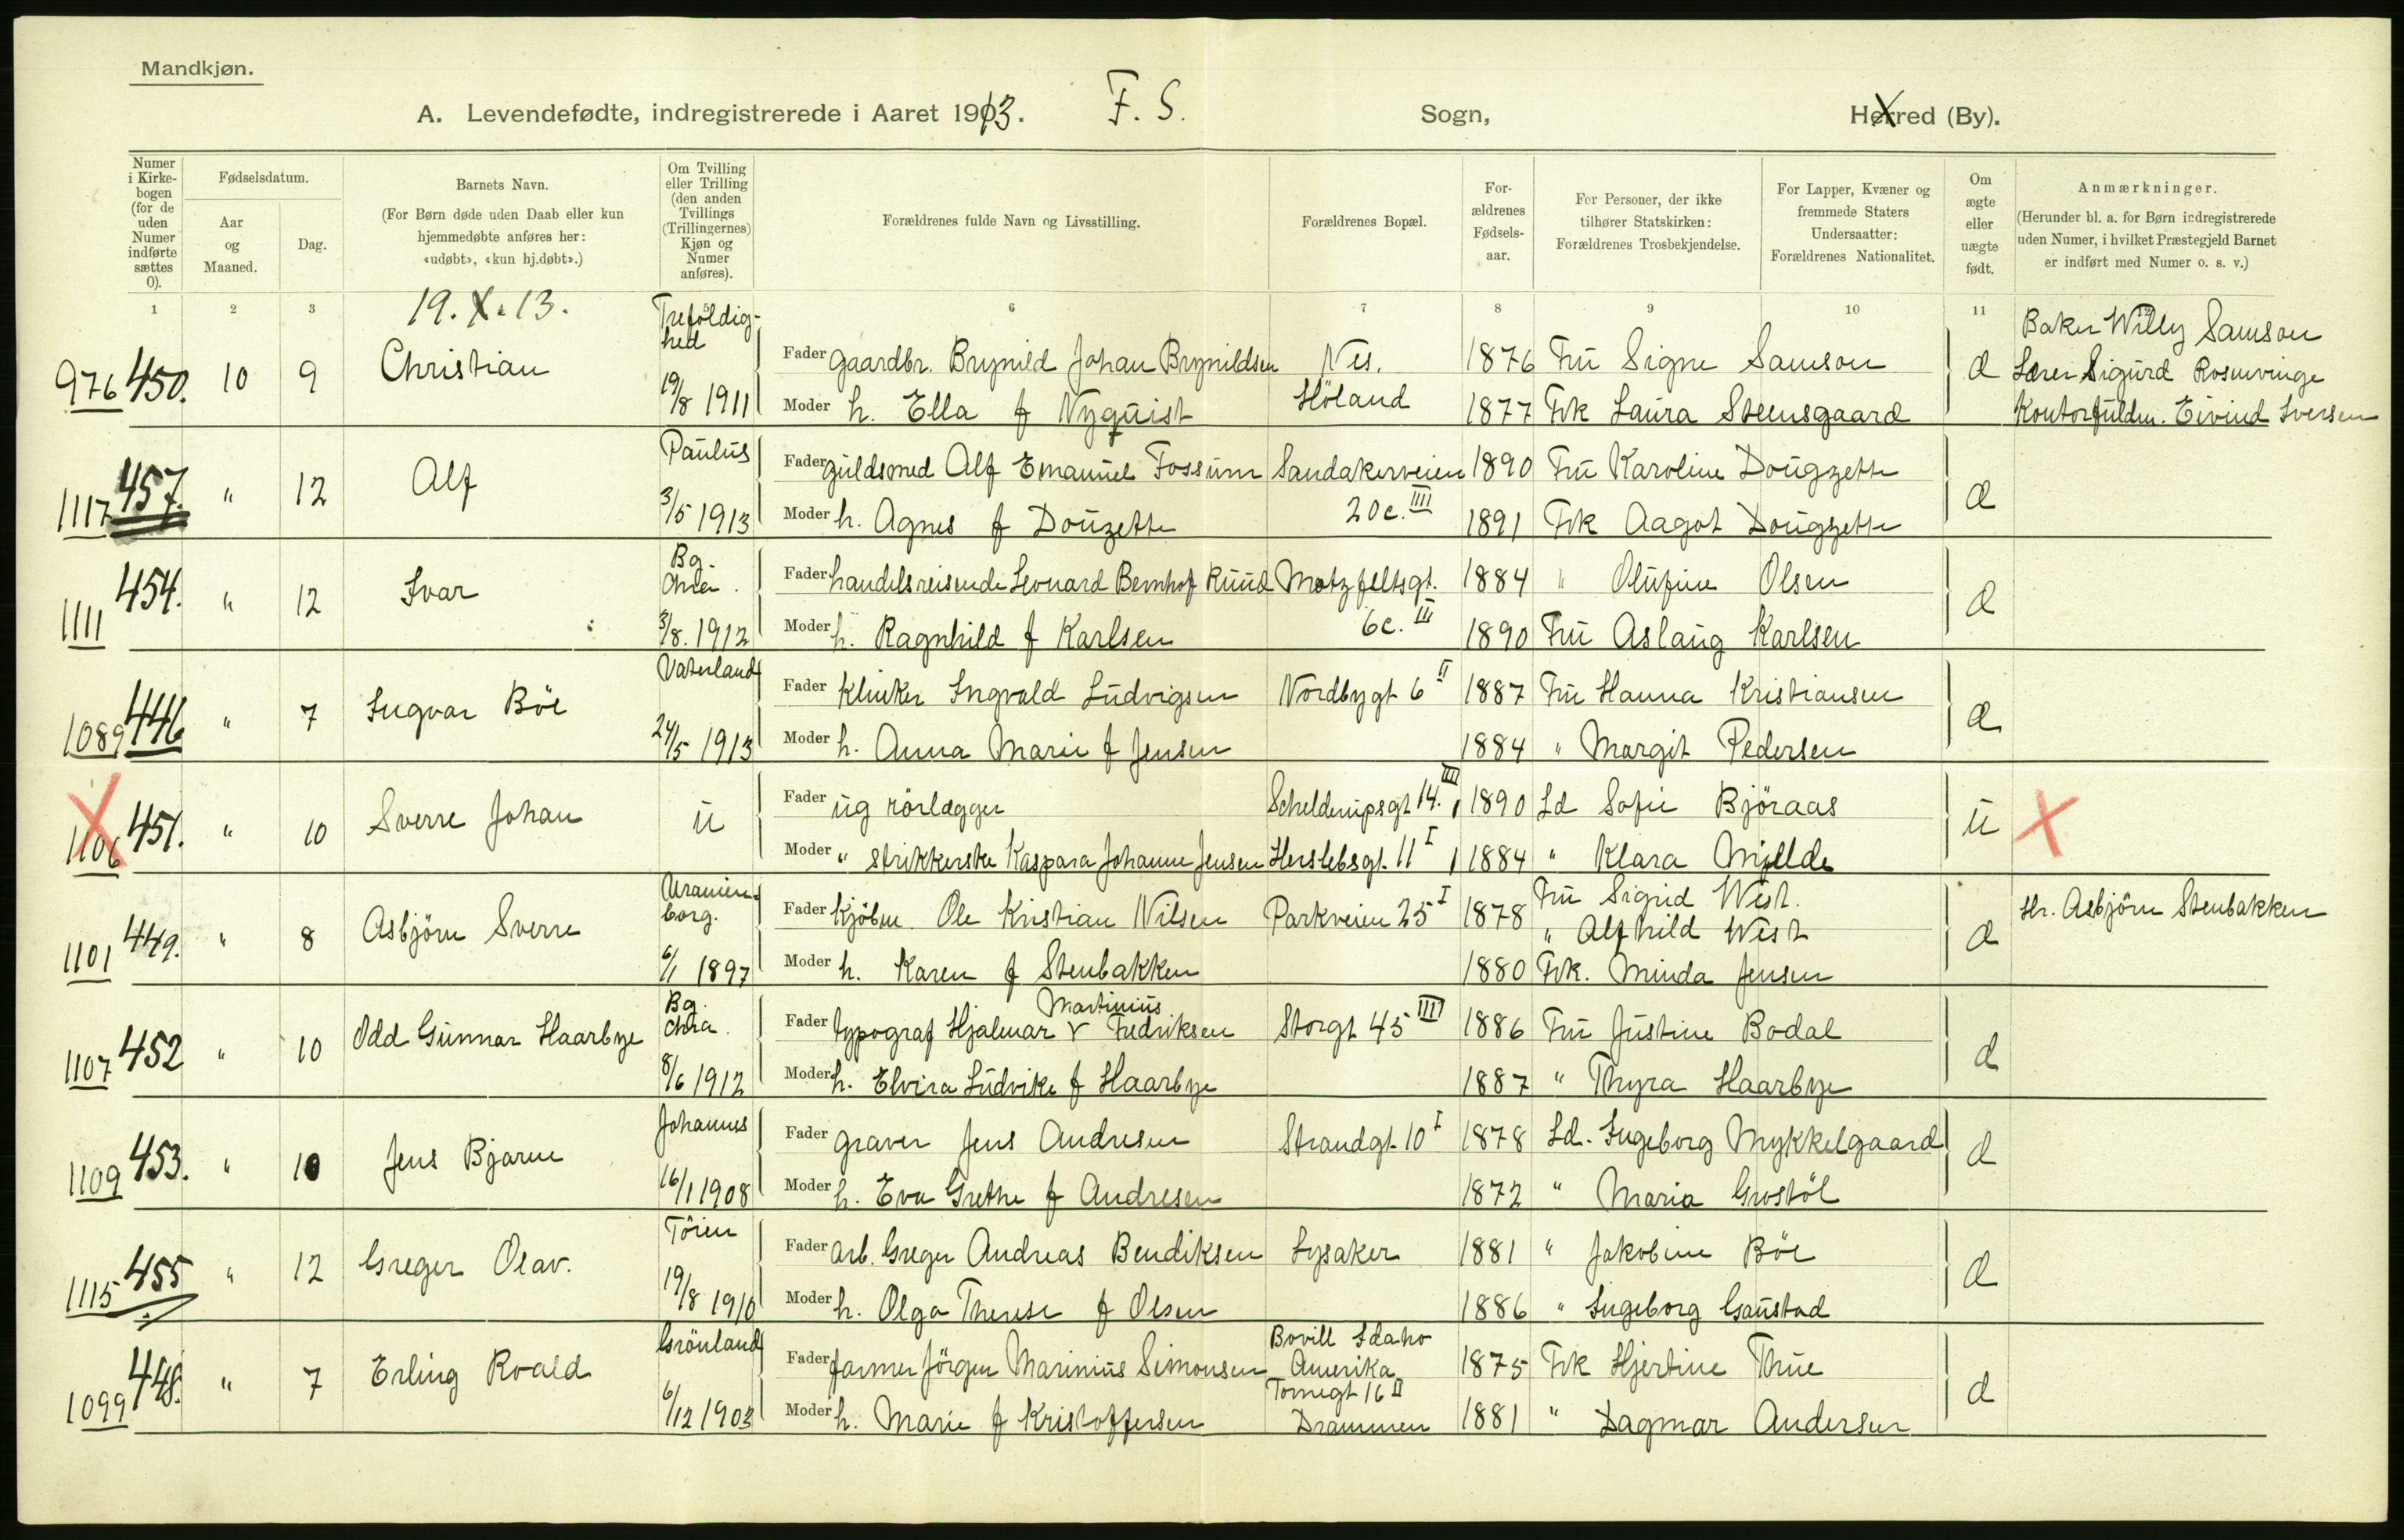 Mandkjøn.
A. Levendefødte, indregistrerede i Aaret 1913. F. S. Sogn, Herred (By).
Numer i Kirkebogen (for de uden Numer indførte sættes 0).
Fødselsdatum.
Aar og Maaned.
Dag.
Barnets Navn.
(For Børn døde uden Daab eller kun hjemmedøbte anføres her: «udøbt», «kun hj.døbt».)
Om Tvilling eller Trilling (den anden Tvillings (Trillingernes) Kjøn og Numer anføres).
Forældrenes fulde Navn og Livsstilling.
Forældrenes Bopæl.
Forældrenes Fødselsaar.
For Personer, der ikke tilhører Statskirken: Forældrenes Trosbekjendelse.
For Lapper, Kvæner og fremmede Staters Undersaatter: Forældrenes Nationalitet.
Om ægte eller uægte født.
Anmærkninger.
(Herunder bl. a. for Børn indregistrerede uden Numer, i hvilket Præstegjeld Barnet er indført med Numer o. s. v.)
1 2 3 5 6 7 8 9 10 11 12
19. X. 13.
976 450. 10 9 Christian Trefoldighed 19/8 1911
Fader gaardbr. Brynild Johan Brynildsen Nes. 1876 Fru Signe Samson
Moder h. Ella f Nyquist Höland 1877 Frk Laura Steensgaard
Æ
Baker Willy Samson
Lærer Sigurd Rosenvinge
Kontorfuldm. Eivind Iversen
1117 457. " 12 Alf Paulus 3/5 1913
Fader guldsmed Alf Emanuel Fossum Sandakerveien 1890 Fru Karoline Dougzette
Moder h. Agnes f Douzette 20c. IIII 1891 Frk Aagot Dougzette
Æ
1111 454. " 12 Ivar Bg. Chra. 3/8. 1912
Fader handelsreisende Leonard Bernhof Ruud Motzfeltsgt. 1884 " Olufine Olsen
Moder h. Ragnhild f Karlsen 6c. III 1890 Fru Aslaug Karlsen
Æ
1089 446 " 7 Ingvar Böe Vaterland 24/5 1913
Fader Klinker Ingvald Ludvigsen Nordbygt 6 II 1887 Fru Hanna Kristiansen
Moder h. Anna Marie f Jensen 1884 " Margit Pedersen
Æ
1106 451. " 10 Sverre Johan u
Fader ug rörlægger Schelderupsgt 14. IIII 1890 Ld Sofie Björaas
Moder " strikkerske Kaspara Johanne Jensen Herslebsgt. 11 I 1884 " Klara
u X
1101 449. " 8 Asbjörn Sverre Uranienborg. 6/1 1897
Fader Kjöbm. Ole Kristian Nilsen Parkveien 25 I 1878 Fru Sigrid West.
" Alfhild West
Moder h. Karen f Stenbakken 1880 Frk. Minda Jensen
Æ
Hr. Asbjörn Stenbakken
1107 452 " 10 Odd Gunnar Haarbye Bg. Chra. 8/6 1912
Martinius
Fader typograf Hjalmar v Fredriksen Storgt 45 IIII 1886 Fru Justine Bodal
Moder h. Elvira Ludvike f Haarbye 1887 " Thyra Haarbye
Æ
1109 453. " 10 Jens Bjarne Johannes 16/1 1908
Fader graver Jens Andresen Strandgt. 10 I 1878 Ld. Ingeborg Mykkelgaard
Moder h. Eva Grethe f Andresen 1872 " Maria Grostöl
Æ
1115 455 " 12 Greger Olav. Töien 19/8 1910
Fader arb. Greger Andreas Bendiksen Lysaker 1881 " Jakobine Böe
Moder h. Olga Therese f Olsen 1886 " Ingeborg Gaustad
Æ
1099 448. " 7 Erling Roald Grönland 6/12 1903
Bovill Idaho
Fader farmer Jörgen Marinius Simonsen Amerika 1875 Frk Hjertine Thue
Tornegt 16 II
Moder h. Marie f Kristoffersen Drammen 1881 " Dagmar Andersen
Æ